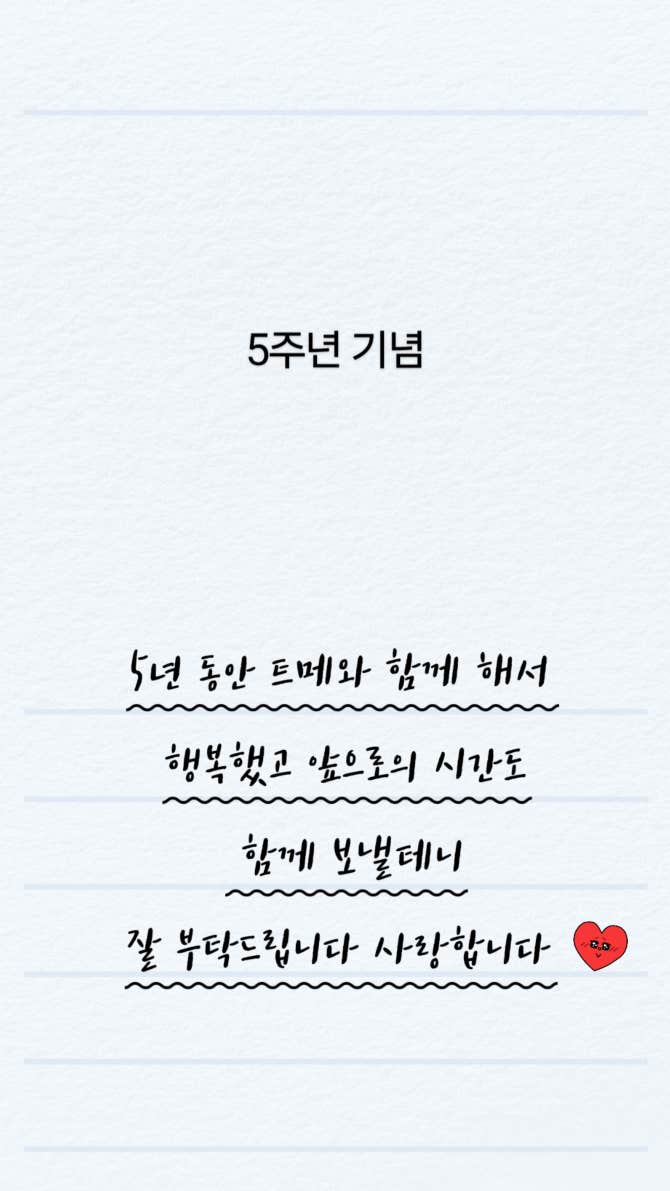 5주년 기념
5년 동안 트메와 함께 해서
행복했고 앞으로의 시간도
함께 보낼테니
잘 부탁드립니다 사랑합니다